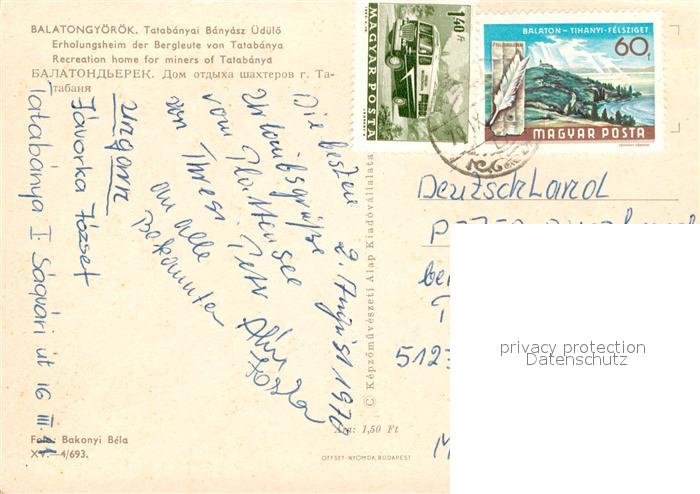 BALATONGYÖRÖK. Tatabányai Bányász Üdülő
Erholungsheim der Bergleute von Tatabánya
Recreation home for miners of Tatabánya
БАЛАТОНДЬЕРЕК. Дом отдыха шахтеров г. Та-
табаня
1·40 Ft
MAGYAR POSTA
BALATON - TIHANYI-FÉLSZIGET
60f
MAGYAR POSTA
Die besten
Urlaubsgrüße
vom Plattensee
von
an alle
Bekannten
2. August 1970
Ungarn
Jávorka József
Tatabánya I. Ságvári út 16 III.
© Képzőművészeti Alap Kiadóvállalata
Deutschland
512
privacy protection
Datenschutz
Ára: 1,50 Ft
Foto: Bakonyi Béla
XV.—4/693.
OFFSET-NYOMDA, BUDAPEST